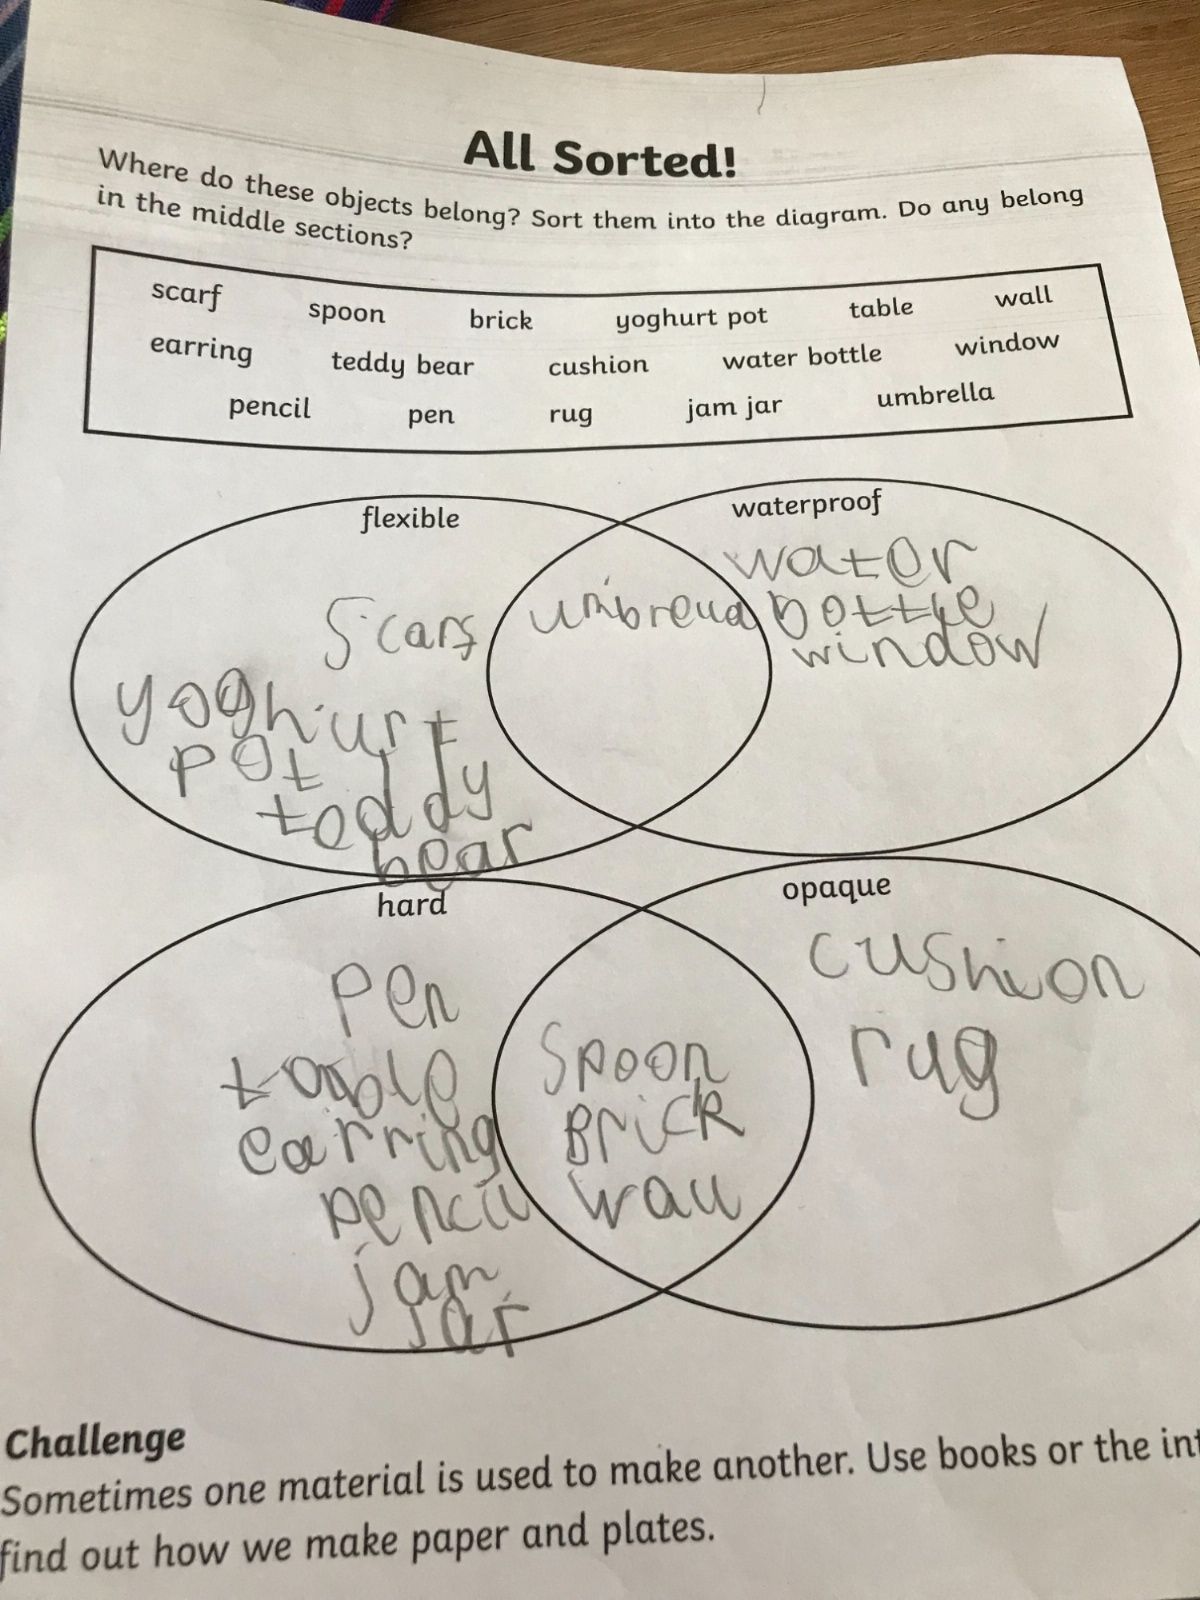 All Sorted!
Where do these objects belong? Sort them into the diagram. Do any belong
in the middle sections?
scarf spoon brick yoghurt pot table wall
earring teddy bear cushion water bottle window
pencil pen rug jam jar umbrella
flexible
scarf
yoghurt
pot
teddy
bear
umbrella
waterproof
water
bottle
window
hard
pen
table
earring
pencil
jam
jar
spoon
Brick
wall
opaque
cushion
rug
Challenge
Sometimes one material is used to make another. Use books or the int
find out how we make paper and plates.